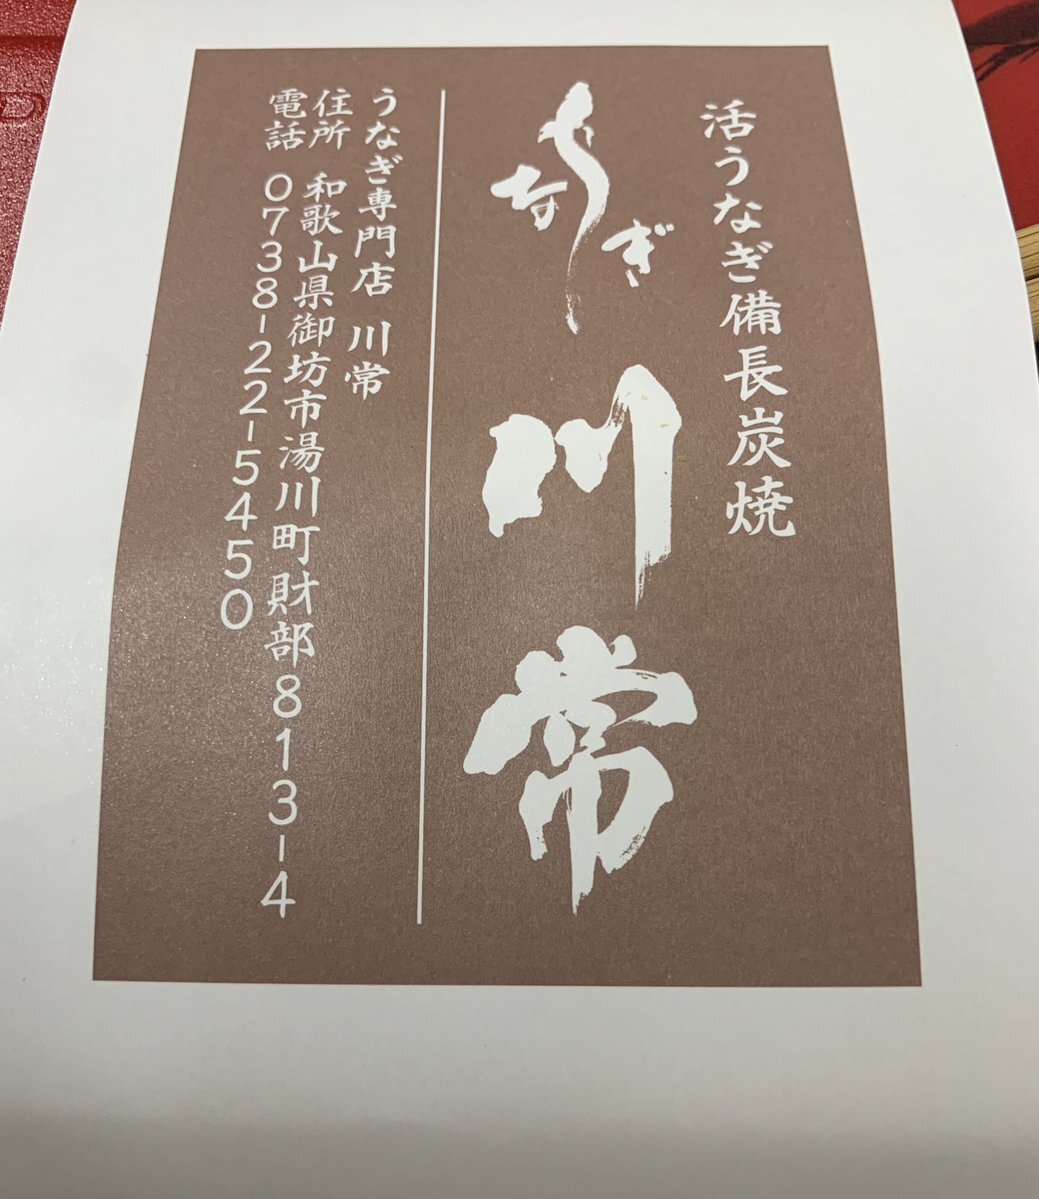 活うなぎ備長炭焼
うなぎ 川常
うなぎ専門店 川常
住所 和歌山県御坊市湯川町財部813-4
電話 0738-22-5450